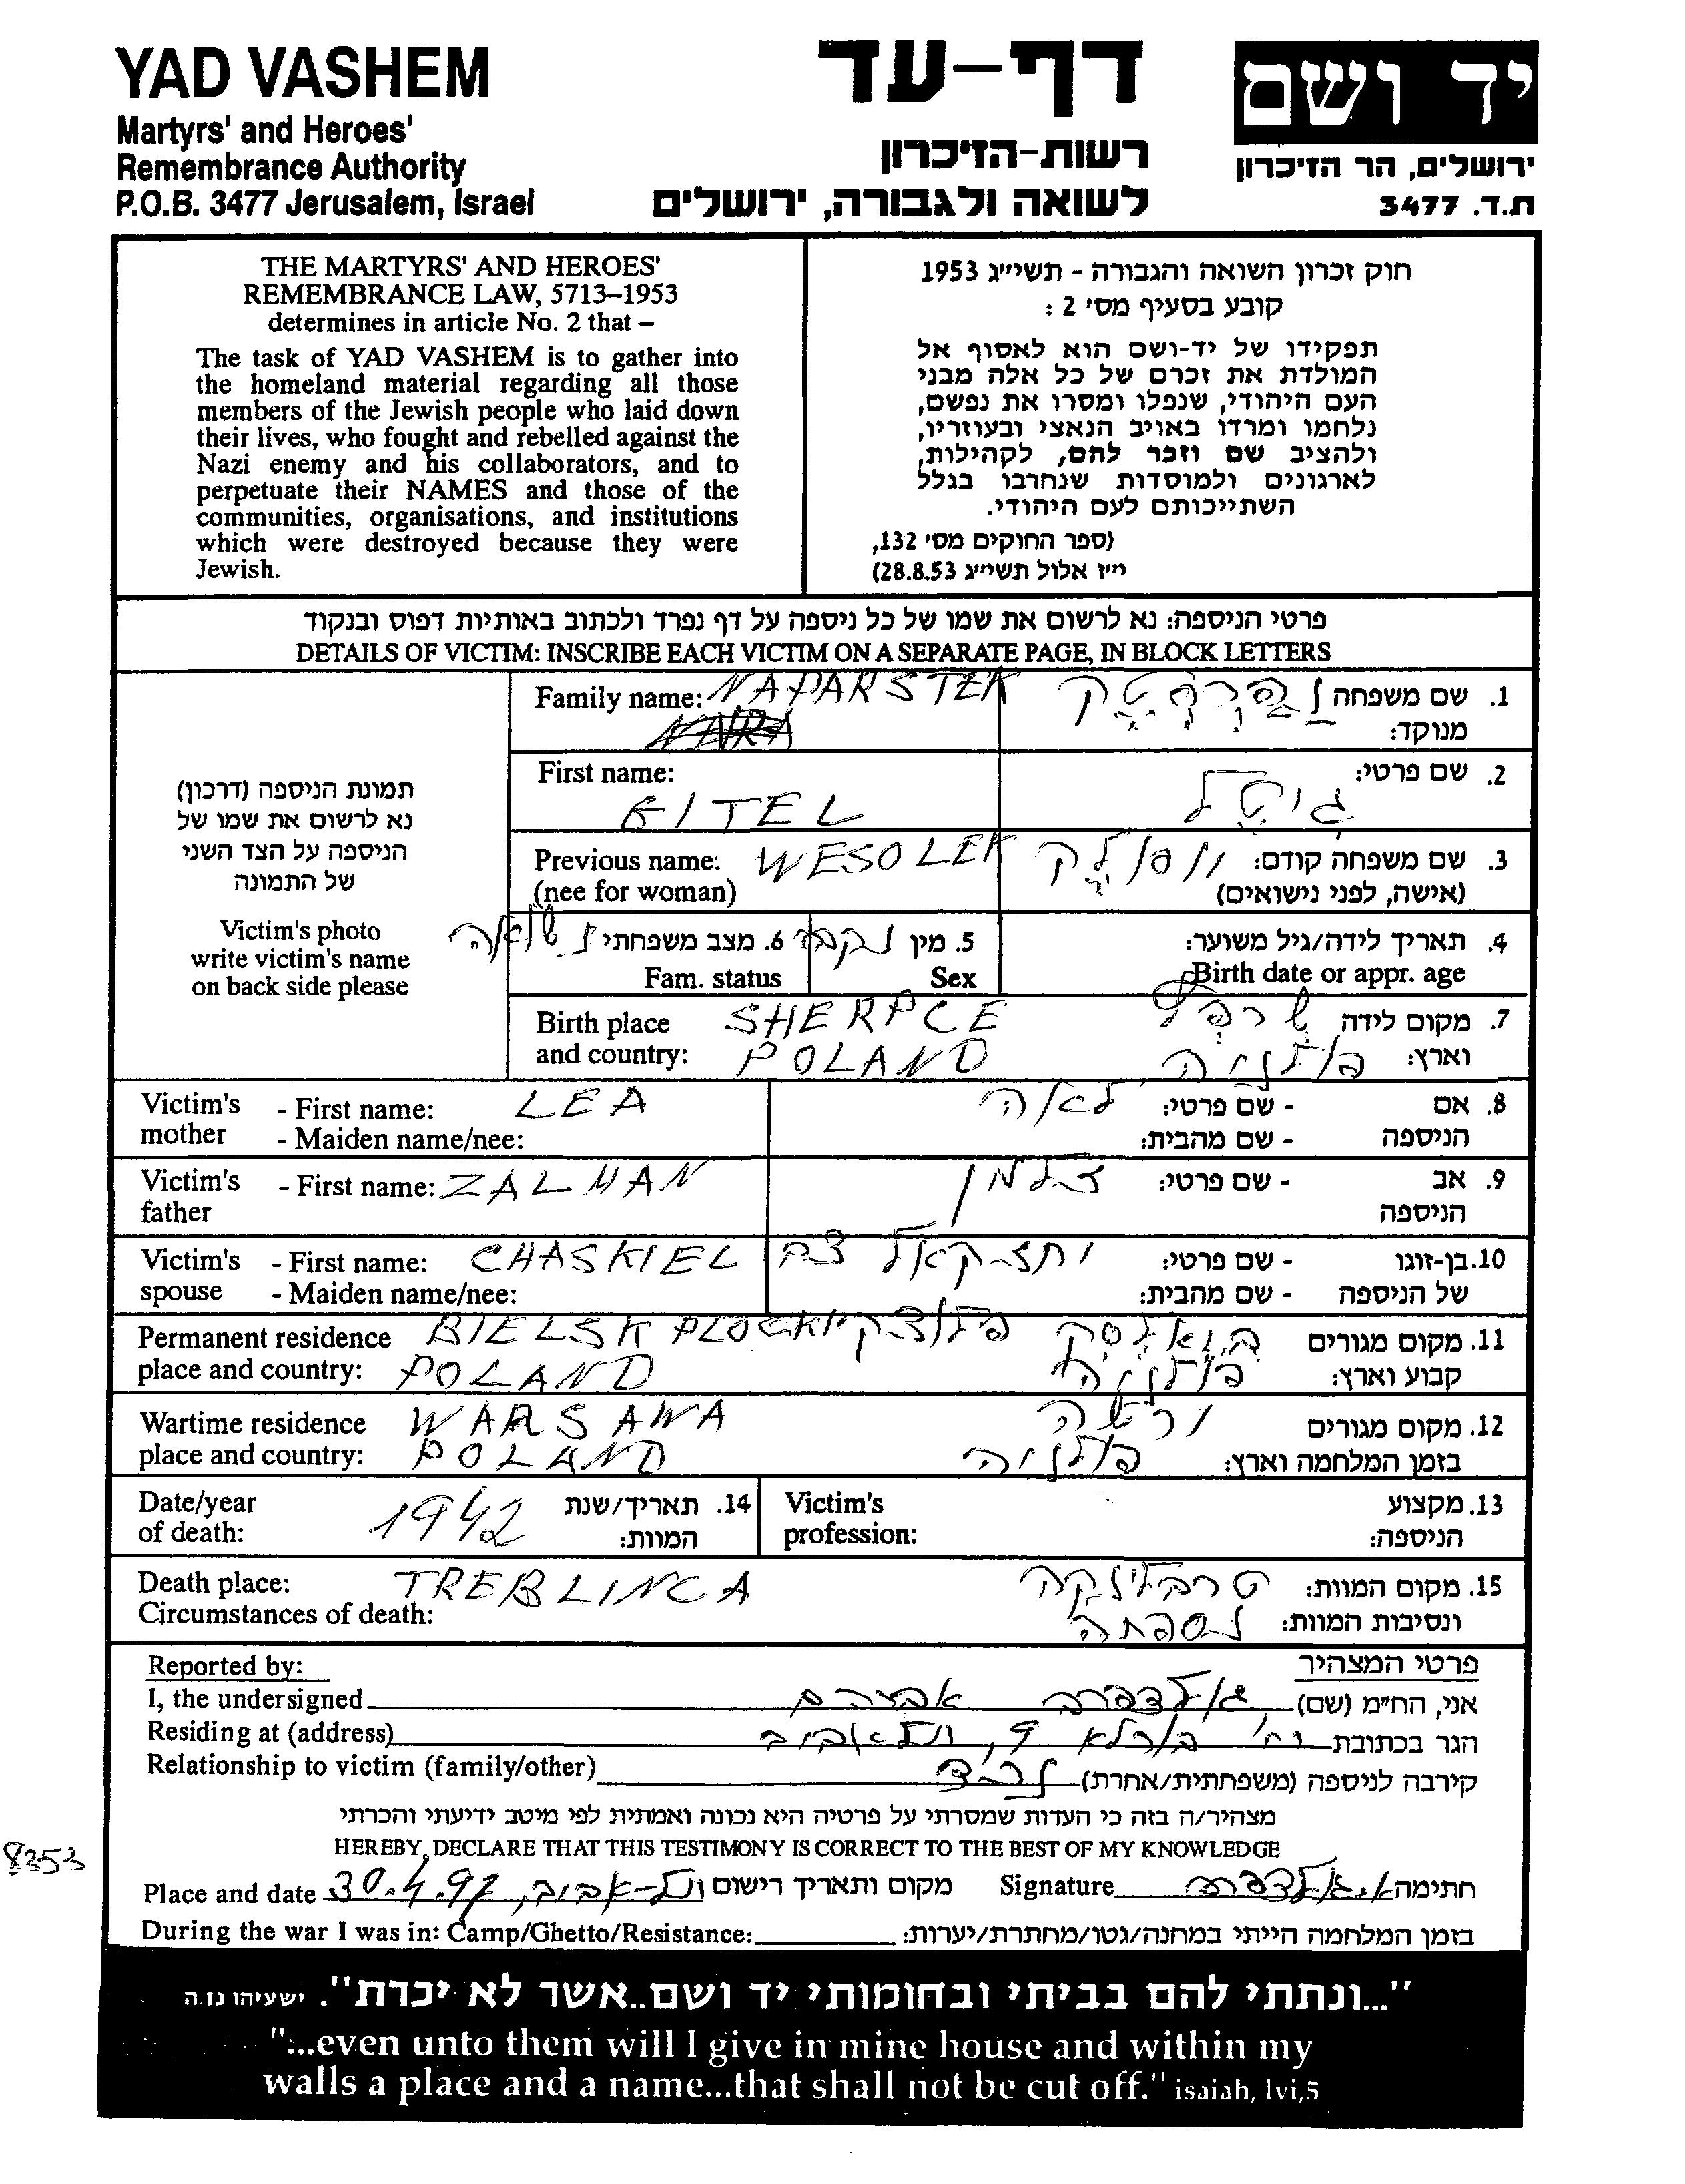 YAD VASHEM
Martyrs' and Heroes'
Remembrance Authority
P.O.B. 3477 Jerusalem, Israel
דף-עד
רשות-הזיכרון
לשואה ולגבורה, ירושלים
יד ושם
ירושלים, הר הזיכרון
ת.ד. 3477
THE MARTYRS' AND HEROES'
REMEMBRANCE LAW, 5713–1953
determines in article No. 2 that –
The task of YAD VASHEM is to gather into
the homeland material regarding all those
members of the Jewish people who laid down
their lives, who fought and rebelled against the
Nazi enemy and his collaborators, and to
perpetuate their NAMES and those of the
communities, organisations, and institutions
which were destroyed because they were
Jewish.
חוק זכרון השואה והגבורה - תשי״ג 1953
קובע בסעיף מס' 2 :
תפקידו של יד-ושם הוא לאסוף אל
המולדת את זכרם של כל אלה מבני
העם היהודי, שנפלו ומסרו את נפשם,
נלחמו ומרדו באויב הנאצי ובעוזריו,
ולהציב שם וזכר להם, לקהילות,
לארגונים ולמוסדות שנחרבו בגלל
השתייכותם לעם היהודי.
(ספר החוקים מס' 132,
י״ז אלול תשי״ג 28.8.53)
פרטי הניספה: נא לרשום את שמו של כל ניספה על דף נפרד ולכתוב באותיות דפוס ובנקוד
DETAILS OF VICTIM: INSCRIBE EACH VICTIM ON A SEPARATE PAGE, IN BLOCK LETTERS
תמונת הניספה (דרכון)
נא לרשום את שמו של
הניספה על הצד השני
של התמונה
Victim's photo
write victim's name
on back side please
Family name: NAPARSTEK
1. שם משפחה נפרסטק
מנוקד:
First name:
GITEL
2. שם פרטי:
גיטל
Previous name: WESOLEK
(nee for woman)
3. שם משפחה קודם: ווסולק
(אישה, לפני נישואים)
4. תאריך לידה/גיל משוער:
Birth date or appr. age
5. מין נקבה
Sex
6. מצב משפחתי נשואה
Fam. status
Birth place SHERPCE
and country: POLAND
7. מקום לידה שרפץ
וארץ: פולניה
Victim's - First name: LEA
mother - Maiden name/nee:
8. אם - שם פרטי: לאה
הניספה - שם מהבית:
Victim's - First name: ZALMAN
father
9. אב - שם פרטי: זלמן
הניספה
Victim's - First name: CHASKIEL
spouse - Maiden name/nee:
10. בן-זוגו - שם פרטי: יחזקאל צבי
של הניספה - שם מהבית:
Permanent residence BIELSK PLOCKI
place and country: POLAND
11. מקום מגורים ביאלסק פלוצקי
קבוע וארץ: פולניה
Wartime residence WARSAWA
place and country: POLAND
12. מקום מגורים ורשה
בזמן המלחמה וארץ: פולניה
Date/year 1942
of death:
14. תאריך/שנת
המוות:
Victim's
profession:
13. מקצוע
הניספה:
Death place: TREBLINCA
Circumstances of death:
15. מקום המוות: טרבלינקה
ונסיבות המוות: נספתה
Reported by:
פרטי המצהיר
I, the undersigned
אני, הח״מ (שם) גולדפרב אברהם
Residing at (address)
הגר בכתובת רח' בורלא 9, תל אביב
Relationship to victim (family/other)
קירבה לניספה (משפחתית/אחרת) נכד
מצהיר/ה בזה כי העדות שמסרתי על פרטיה היא נכונה ואמתית לפי מיטב ידיעתי והכרתי
HEREBY, DECLARE THAT THIS TESTIMONY IS CORRECT TO THE BEST OF MY KNOWLEDGE
8353
Place and date 30.4.97, תל-אביב מקום ותאריך רישום
Signature א. גולדפרב חתימה
During the war I was in: Camp/Ghetto/Resistance:
בזמן המלחמה הייתי במחנה/גטו/מחתרת/יערות:
"...ונתתי להם בביתי ובחומותי יד ושם..אשר לא יכרת". ישעיהו נו,ה
"...even unto them will I give in mine house and within my
walls a place and a name...that shall not be cut off." isaiah, lvi,5